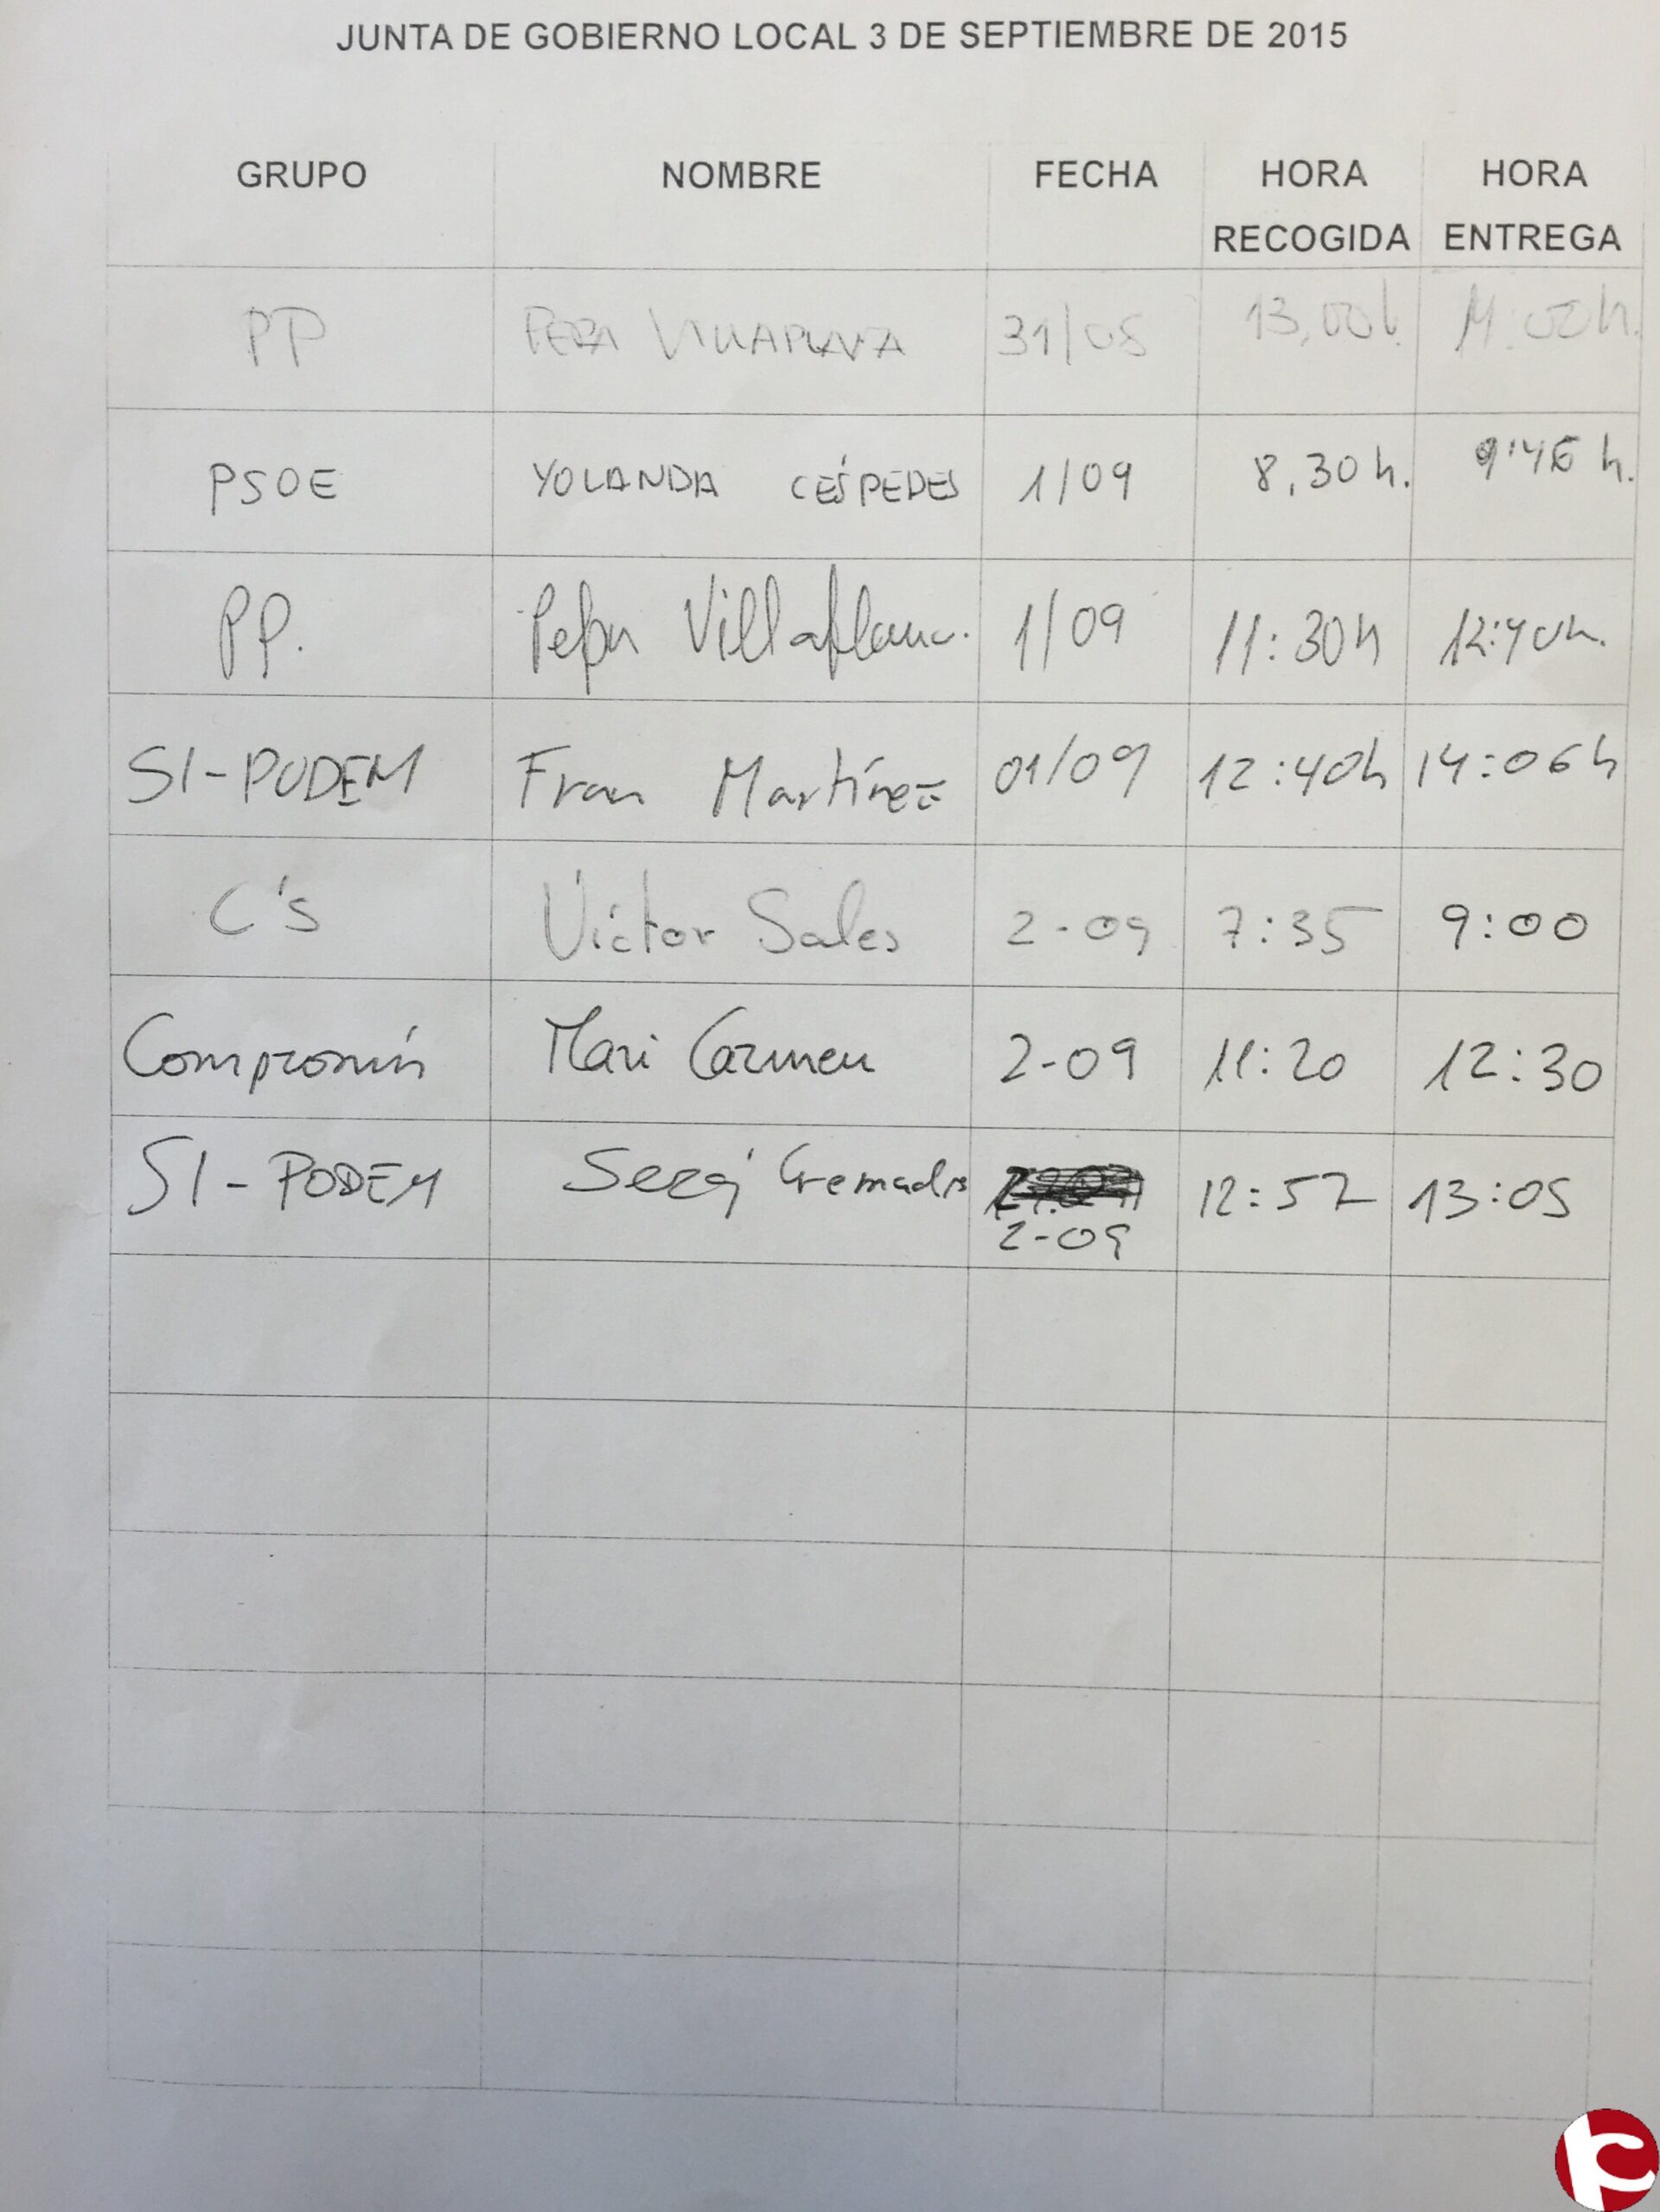 JUNTA DE GOBIERNO LOCAL 3 DE SEPTIEMBRE DE 2015
GRUPO NOMBRE FECHA HORA RECOGIDA HORA ENTREGA
PP 31/08 13,00h. 00h.
PSOE YOLANDA CÉSPEDES 1/09 8,30 h. 9'45 h.
PP. 1/09 11:30h 12:40h.
SI-PODEM Fran Martínez 01/09 12:40h 14:06h
C's Víctor Sales 2-09 7:35 9:00
Compromís Mari Carmen 2-09 11:20 12:30
SI-PODEM Sergi Cremades 2-09 12:57 13:05